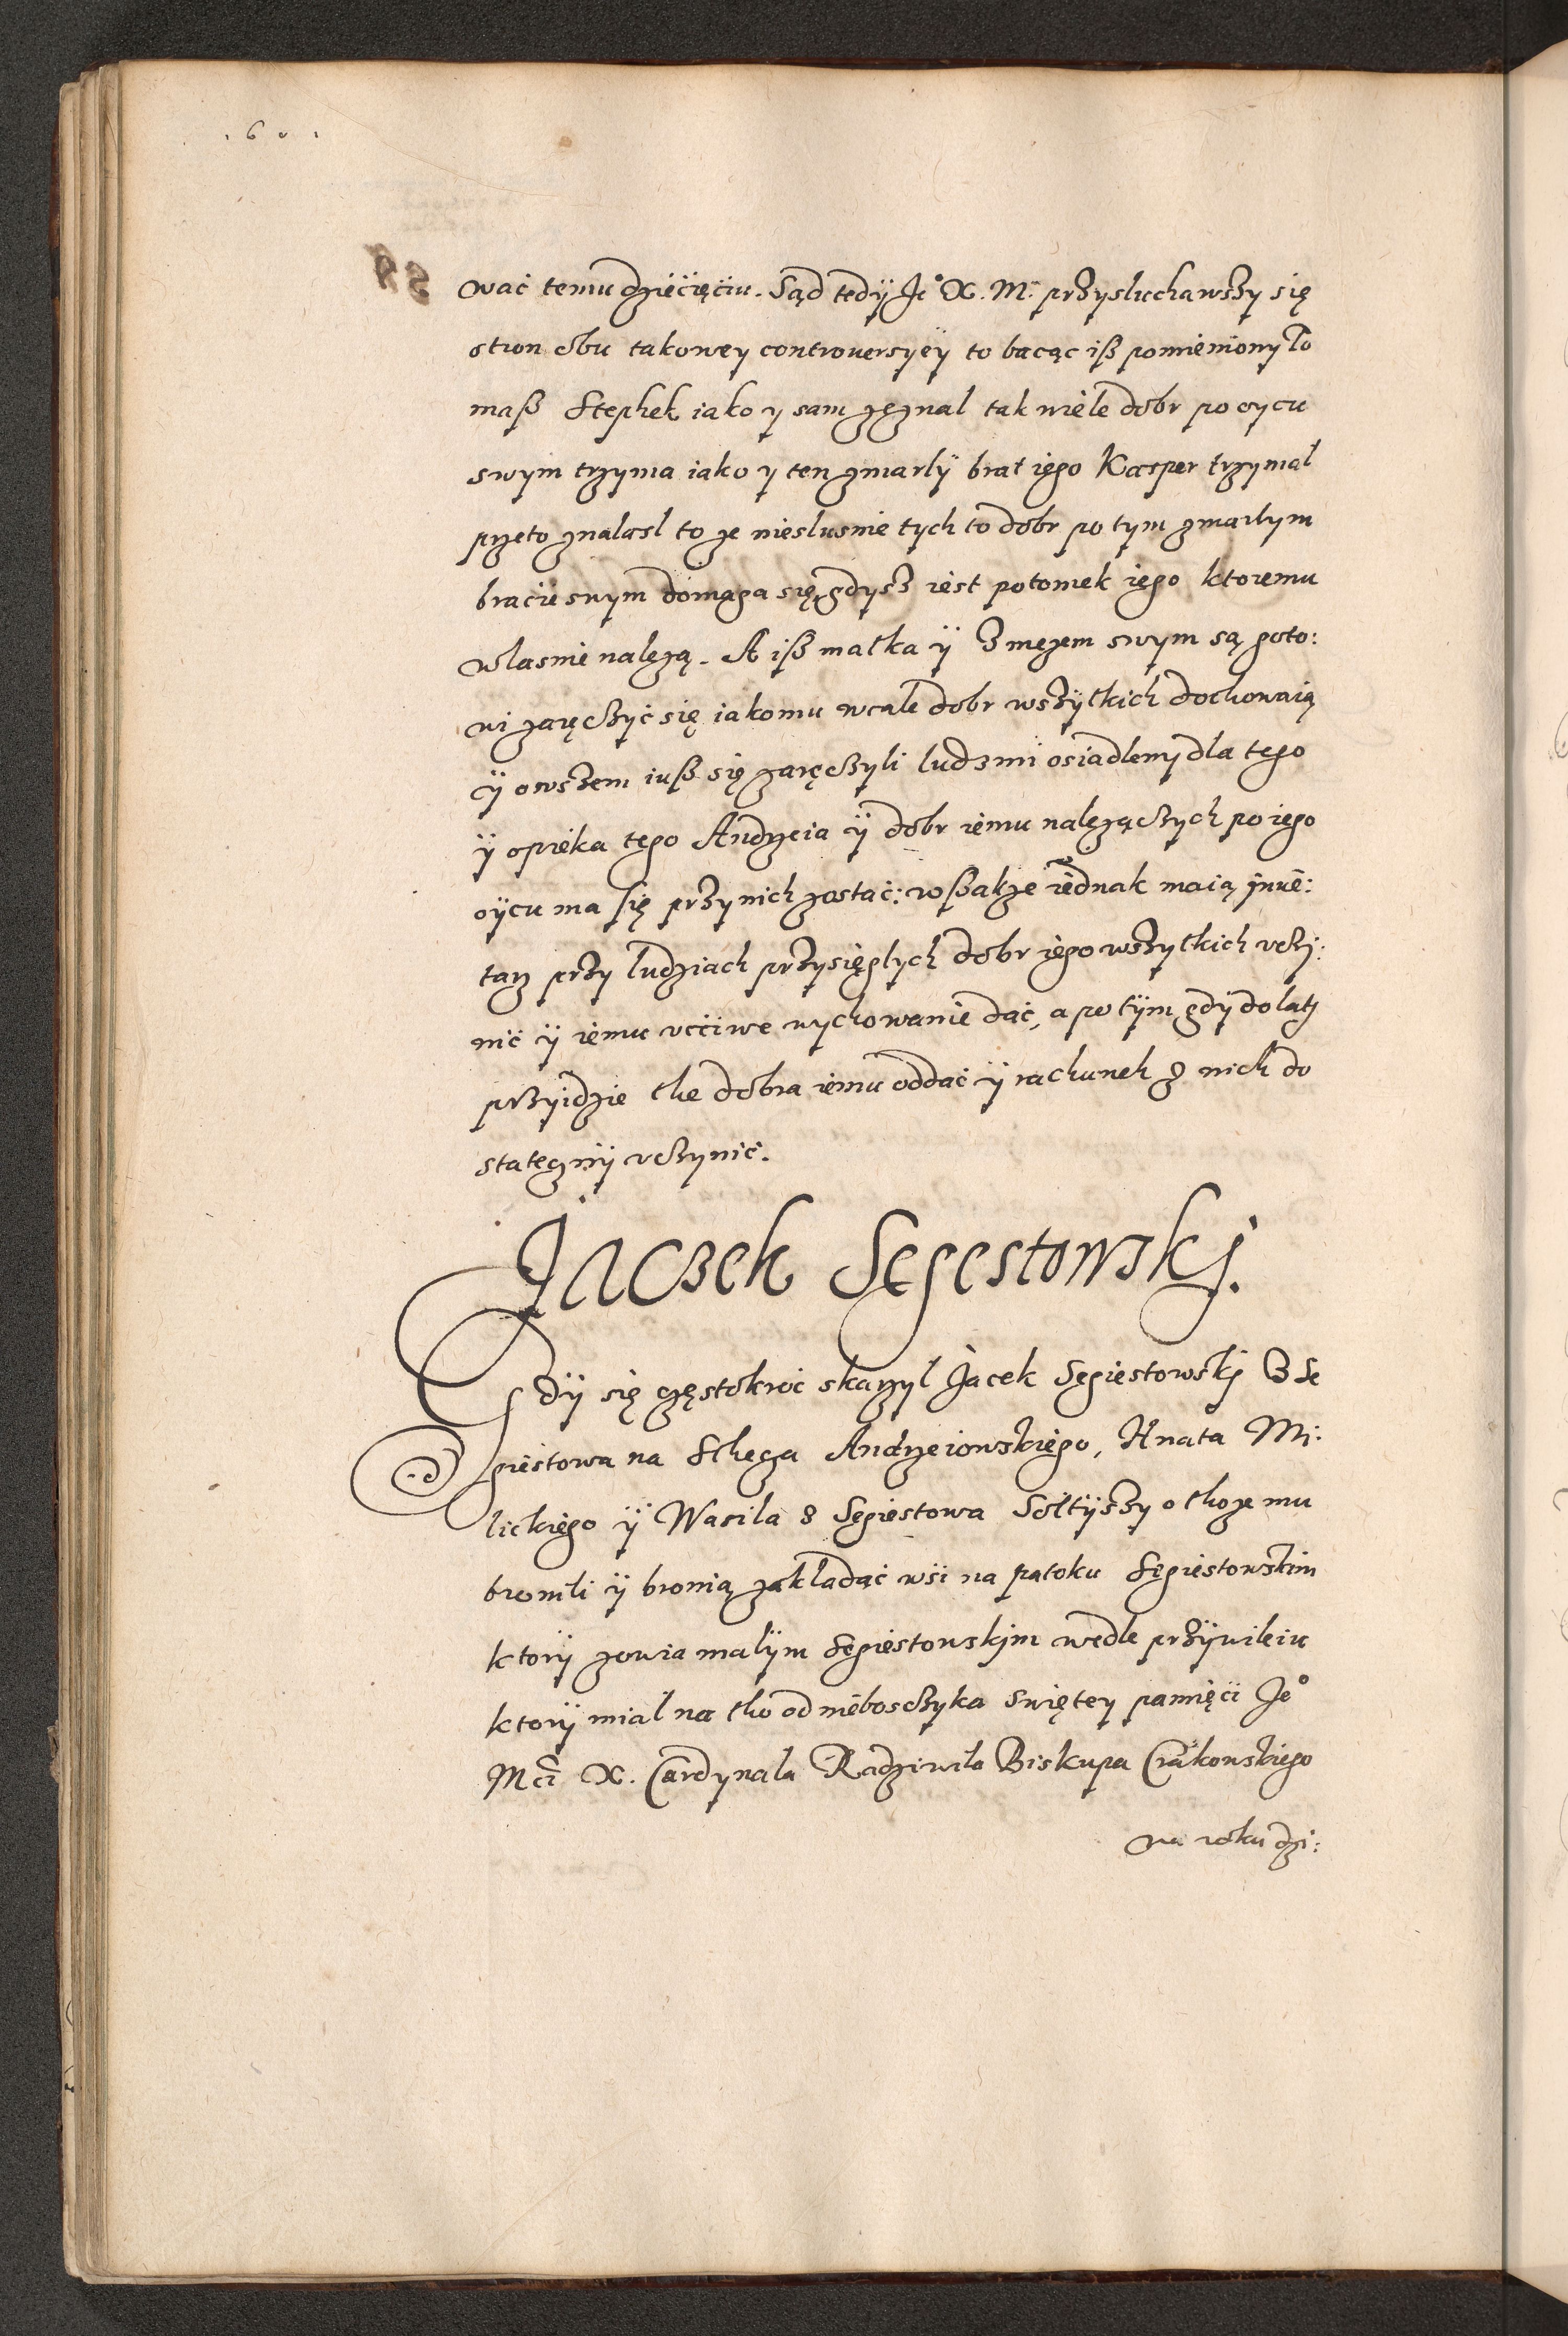 . 6 0 .
wać temu dziecięciu. Sąd tedÿ Je° X. M. przysluchawszy się
stron obu takowey controuersyey to bacąc iß pomieniony To
maß Stephek iako y sam zeznal tak wiele dobr po oycu
swym trzyma iako y ten zmarlÿ brat iego Kasper trzymal
przeto znalasl to ze nieslusnie tych to dobr po tym zmarlym
bracie swym domaga się, gdysz iest potomek iego ktoremu
wlasnie należą. A iß matka ÿ z mezem swym są goto:
wi zaręczyć się iakomu wcale dobr wszÿtkich dochowaią
ÿ owszem iuß się zaręczyli ludzmi osiadlemy dla tego
ÿ opieka tego Andrzeia ÿ dobr iemu należączych po iego
oÿcu ma się przy nich zostać: wßakze iednak maią jnuē:
tarz przy ludziach przysięglych dobr iego wszytkich vczj:
nić ÿ iemu vcciwe wychowanie dać, a po tÿm gdÿ do latj
przyidzie the dobra iemu oddać ÿ rachunek z nich do
stategznÿ vczynić.
Jaczek Segestowskj.
Gdÿ się częstokroć skarzyl Jacek Segiestowskj z Se
giestowa na Sthega Andrzeiowskiego, Hnata Mj:
lickiego ÿ Wasila z Segiestowa Soltÿszy o tho ze mu
bronili ÿ bronią zakladać wśi na potoku Segiestowskim
ktorÿ zowia malÿm Segiestowskjm wedle przÿwileiu
ktorÿ mial na tho od niebosczyka swiętey pamięci Je°
Mći X. Cardynala Radziwila Biskupa Crakowskiego
na roku dzi: